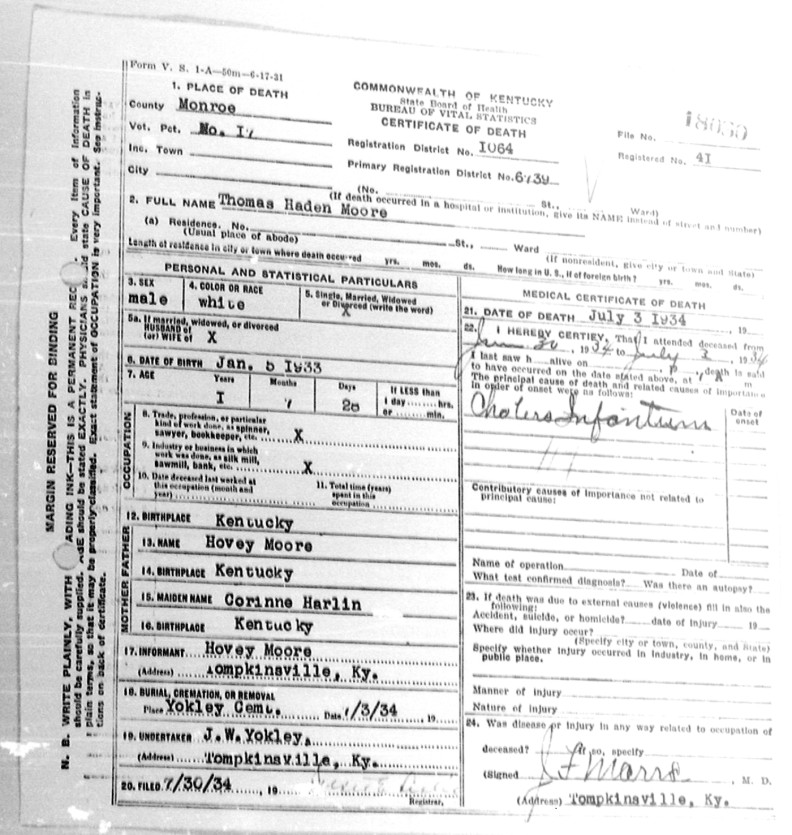 Form V. S. 1-A—50m—6-17-31
1. PLACE OF DEATH
County Monroe
Vot. Pct. No. I7
Inc. Town
City
COMMONWEALTH OF KENTUCKY
State Board of Health
BUREAU OF VITAL STATISTICS
CERTIFICATE OF DEATH
Registration District No. I064
Primary Registration District No. 6739
File No.
Registered No. 4I
(No. St., Ward)
(If death occurred in a hospital or institution, give its NAME instead of street and number)
2. FULL NAME Thomas Haden Moore
(a) Residence. No. St., Ward
(Usual place of abode) (If nonresident, give city or town and State)
Length of residence in city or town where death occurred yrs. mos. ds. How long in U. S., if of foreign birth? yrs. mos. ds.
PERSONAL AND STATISTICAL PARTICULARS
3. SEX
male
4. COLOR OR RACE
white
5. Single, Married, Widowed
or Divorced (write the word)
X
5a. If married, widowed, or divorced
HUSBAND of
(or) WIFE of X
6. DATE OF BIRTH Jan. 5 I933
7. AGE Years Months Days If LESS than
1 day hrs.
or min.
I
8. Trade, profession, or particular
kind of work done, as spinner,
sawyer, bookkeeper, etc. X
9. Industry or business in which
work was done, as silk mill,
sawmill, bank, etc. X
10. Date deceased last worked at
this occupation (month and
year)
11. Total time (years)
spent in this
occupation
OCCUPATION
12. BIRTHPLACE Kentucky
FATHER
13. NAME Hovey Moore
14. BIRTHPLACE Kentucky
MOTHER
15. MAIDEN NAME Corinne Harlin
16. BIRTHPLACE Kentucky
17. INFORMANT Hovey Moore
(Address) Tompkinsville, Ky.
18. BURIAL, CREMATION, OR REMOVAL
Place Yokley Cemt. Date 7/3/34, 19
19. UNDERTAKER J.W.Yokley,
(Address) Tompkinsville, Ky.
20. FILED 7/30/34, 19
Registrar.
MEDICAL CERTIFICATE OF DEATH
21. DATE OF DEATH July 3 I934, 19
22. I HEREBY CERTIFY, That I attended deceased from
June 30, 1934 to July 3, 1934
I last saw h alive on death is said
to have occurred on the date stated above, at m
The principal cause of death and related causes of importance
in order of onset were as follows:
Date of
onset
Cholera Infantum
Contributory causes of importance not related to
principal cause:
Name of operation Date of
What test confirmed diagnosis? Was there an autopsy?
23. If death was due to external causes (violence) fill in also the
following:
Accident, suicide, or homicide? date of injury 19
Where did injury occur?
(Specify city or town, county, and State)
Specify whether injury occurred in industry, in home, or in
public place.
Manner of injury
Nature of injury
24. Was disease or injury in any way related to occupation of
deceased? If so, specify
(Signed , M. D.
(Address) Tompkinsville, Ky.
MARGIN RESERVED FOR BINDING
N. B. WRITE PLAINLY, WITH ADING INK—THIS IS A PERMANENT REC . Every item of information
should be carefully supplied. AGE should be stated EXACTLY. PHYSICIANS state CAUSE OF DEATH in
plain terms, so that it may be properly classified. Exact statement of OCCUPATION is very important. See instruc-
tions on back of certificate.